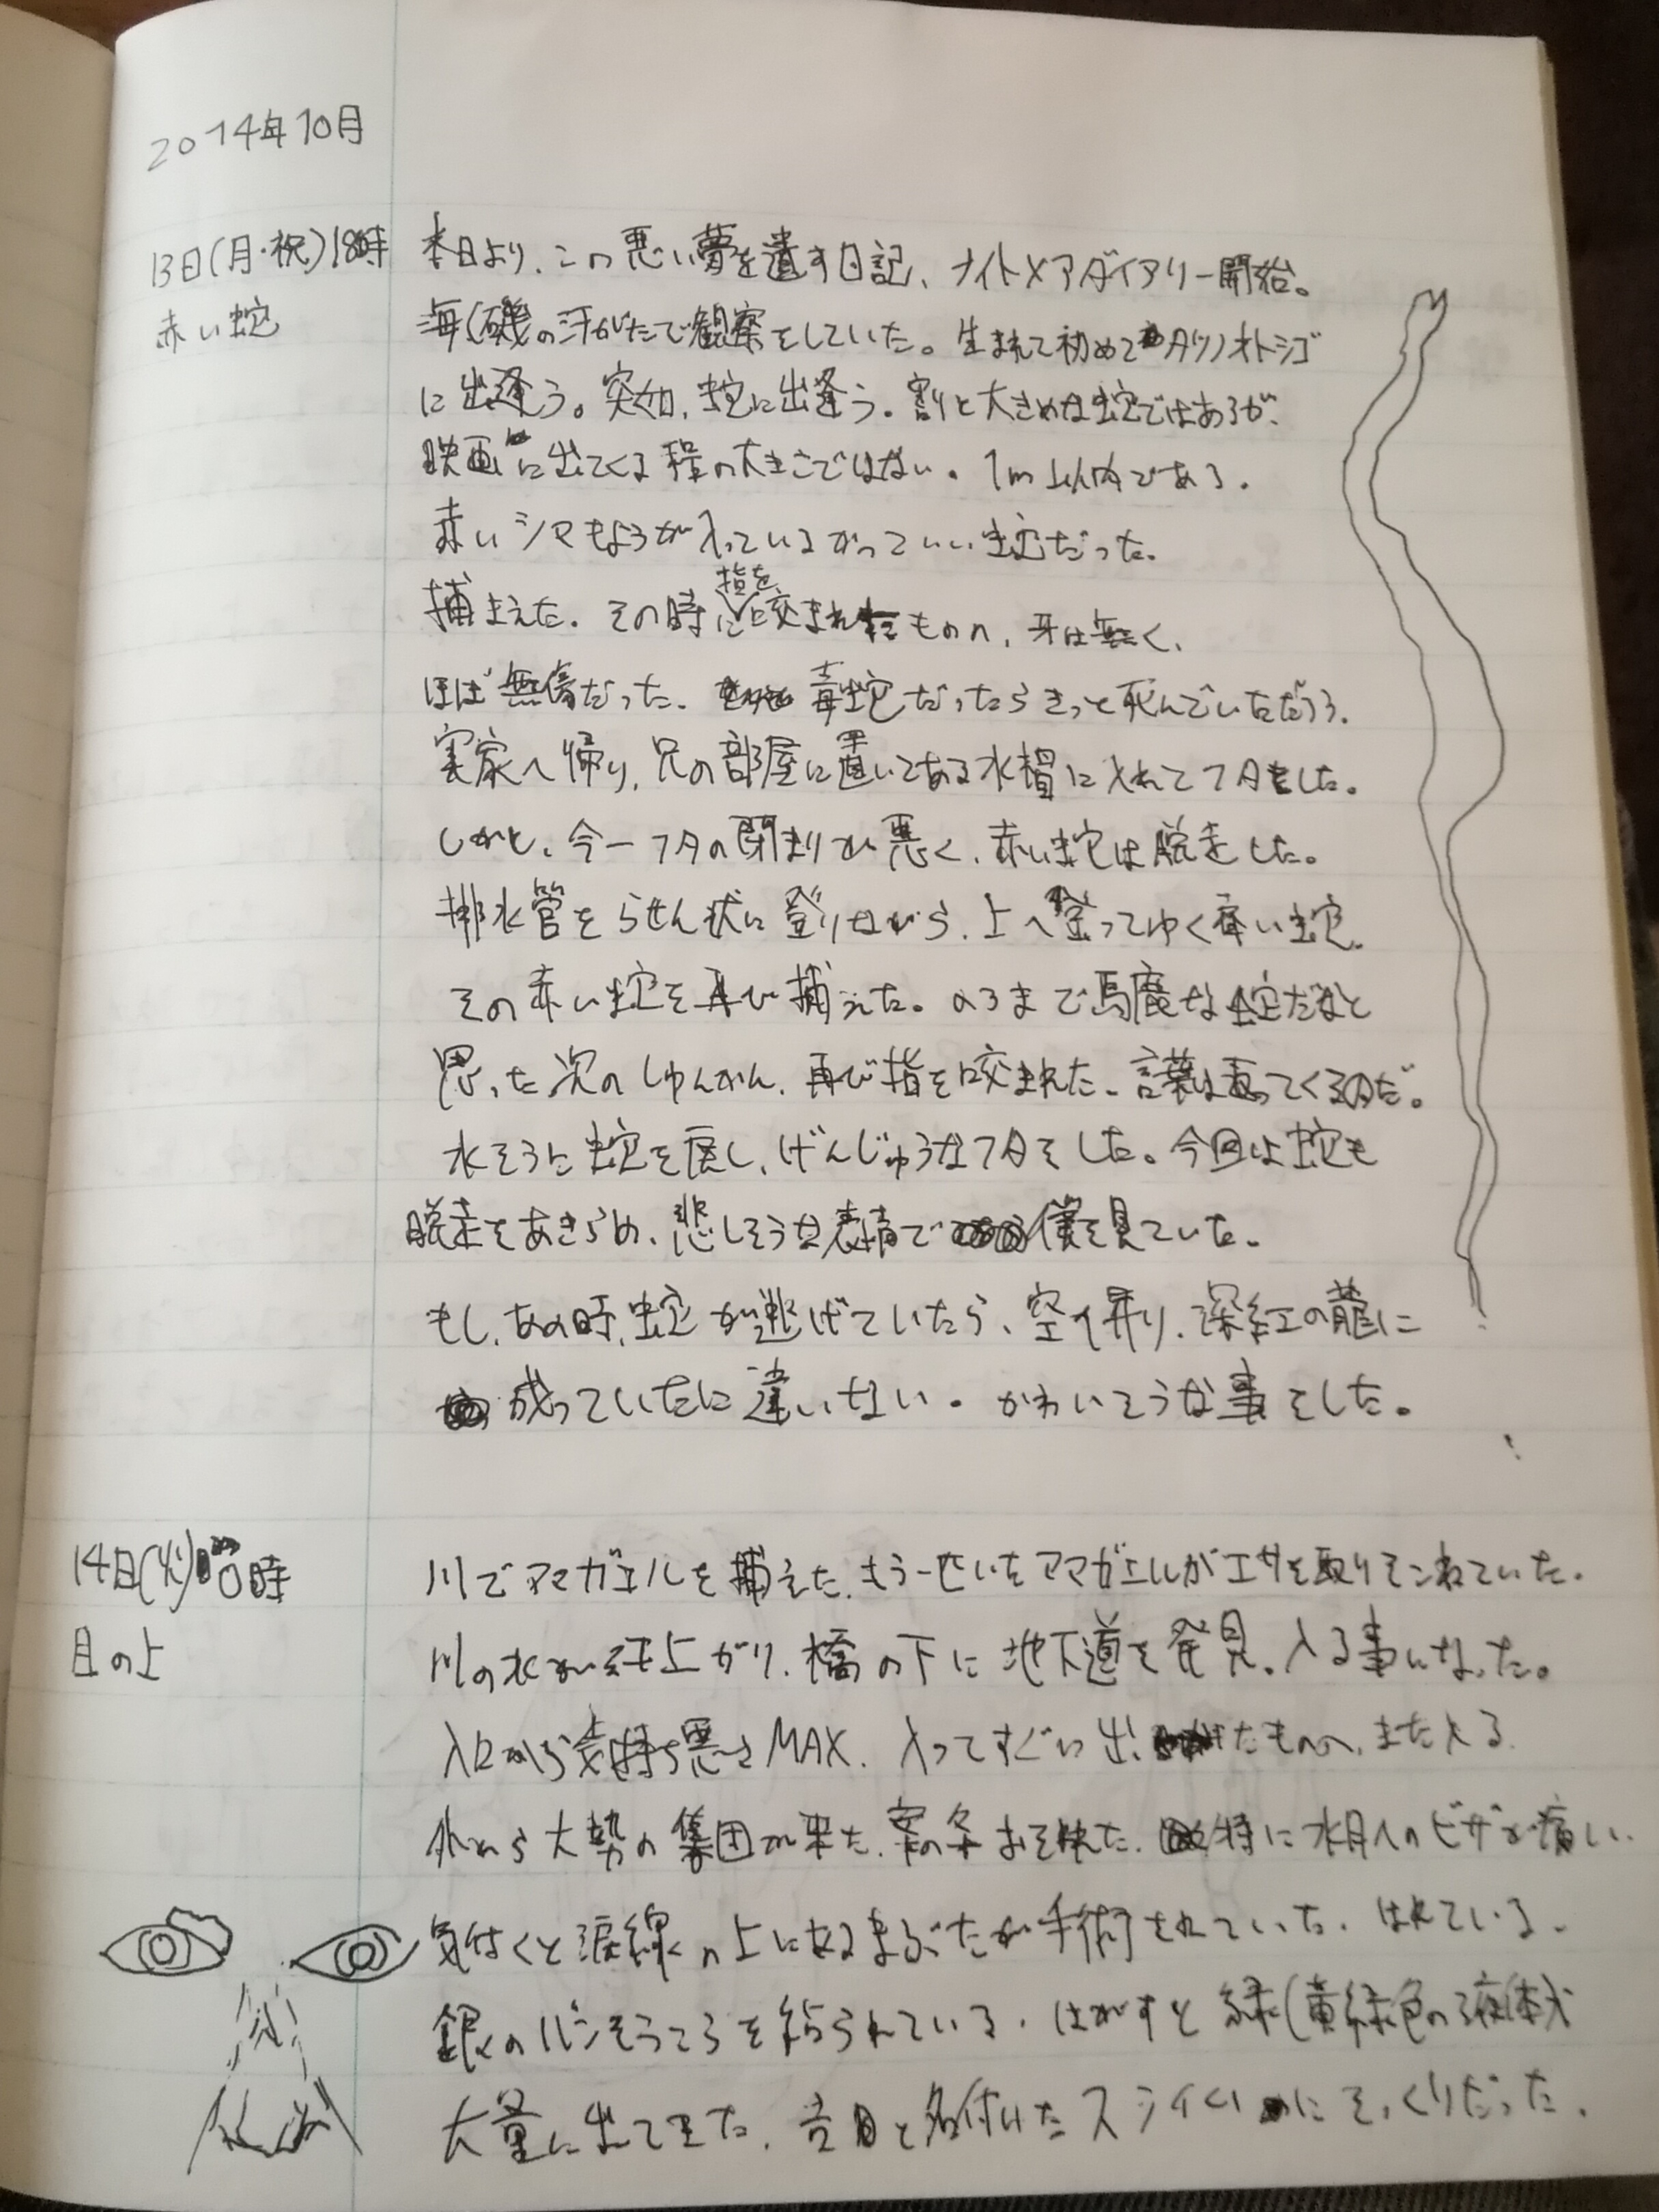 2014年10月
13日(月・祝)18時
赤い蛇
本日より、この悪い夢を遺す日記、ナイトメアダイアリー開始。
海(磯の浅がたで観察をしていた。生まれて初めてタツノオトシゴ
に出逢う。突如、蛇に出逢う。割と大きめな蛇ではあるが、
映画に出てくる程の大きさではない。1m以内である。
赤いシマもようが入っているかっこいい蛇だった。
捕まえた。その時に指を咬まれたものの、牙は無く、
ほぼ無傷だった。毒蛇だったらきっと死んでいただろう。
実家へ帰り、兄の部屋に置いてある水槽に入れてフタをした。
しかし、今一フタの閉まりが悪く、赤い蛇は脱走した。
排水管をらせん状に登りながら、上へ登ってゆく赤い蛇。
その赤い蛇を再び捕えた。のろまで馬鹿な蛇だなと
思った次のしゅんかん、再び指を咬まれた。言葉は返ってくるのだ。
水そうに蛇を戻し、げんじゅうなフタをした。今回は蛇も
脱走をあきらめ、悲しそうな表情で僕を見ていた。
もし、あの時、蛇が逃げていたら、空へ昇り、深紅の龍に
成っていたに違いない。かわいそうな事をした。
14日(火) 時
目の上
川でアマガエルを捕えた。もう一匹いたアマガエルがエサを取りそこねていた。
川の水が干上がり、橋の下に地下道を発見。入る事になった。
入口から気持ち悪さMAX。入ってすぐに出たものの、また入る。
外から大勢の集団が来た。案の条おそわれた。特に水月へのヒザが痛い。
気付くと涙線の上にあるまぶたが手術されていた。はれている。
銀のバンそうこうを貼られている。はがすと緑(黄緑色の液体が
大量に出てきた。と名付けたスライムにそっくりだった。